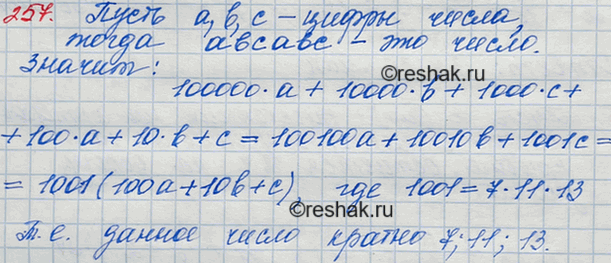 257. Пусть a, b, c – цифры числа,
тогда abcabc – это число.
Значит:
©reshak.ru
100000·a + 10000·b + 1000·c +
+100·a + 10·b + c = 100100a + 10010b + 1001c =
= 1001(100a + 10b + c), где 1001 = 7·11·13
©reshak.ru
Т.е. данное число кратно 7; 11; 13.